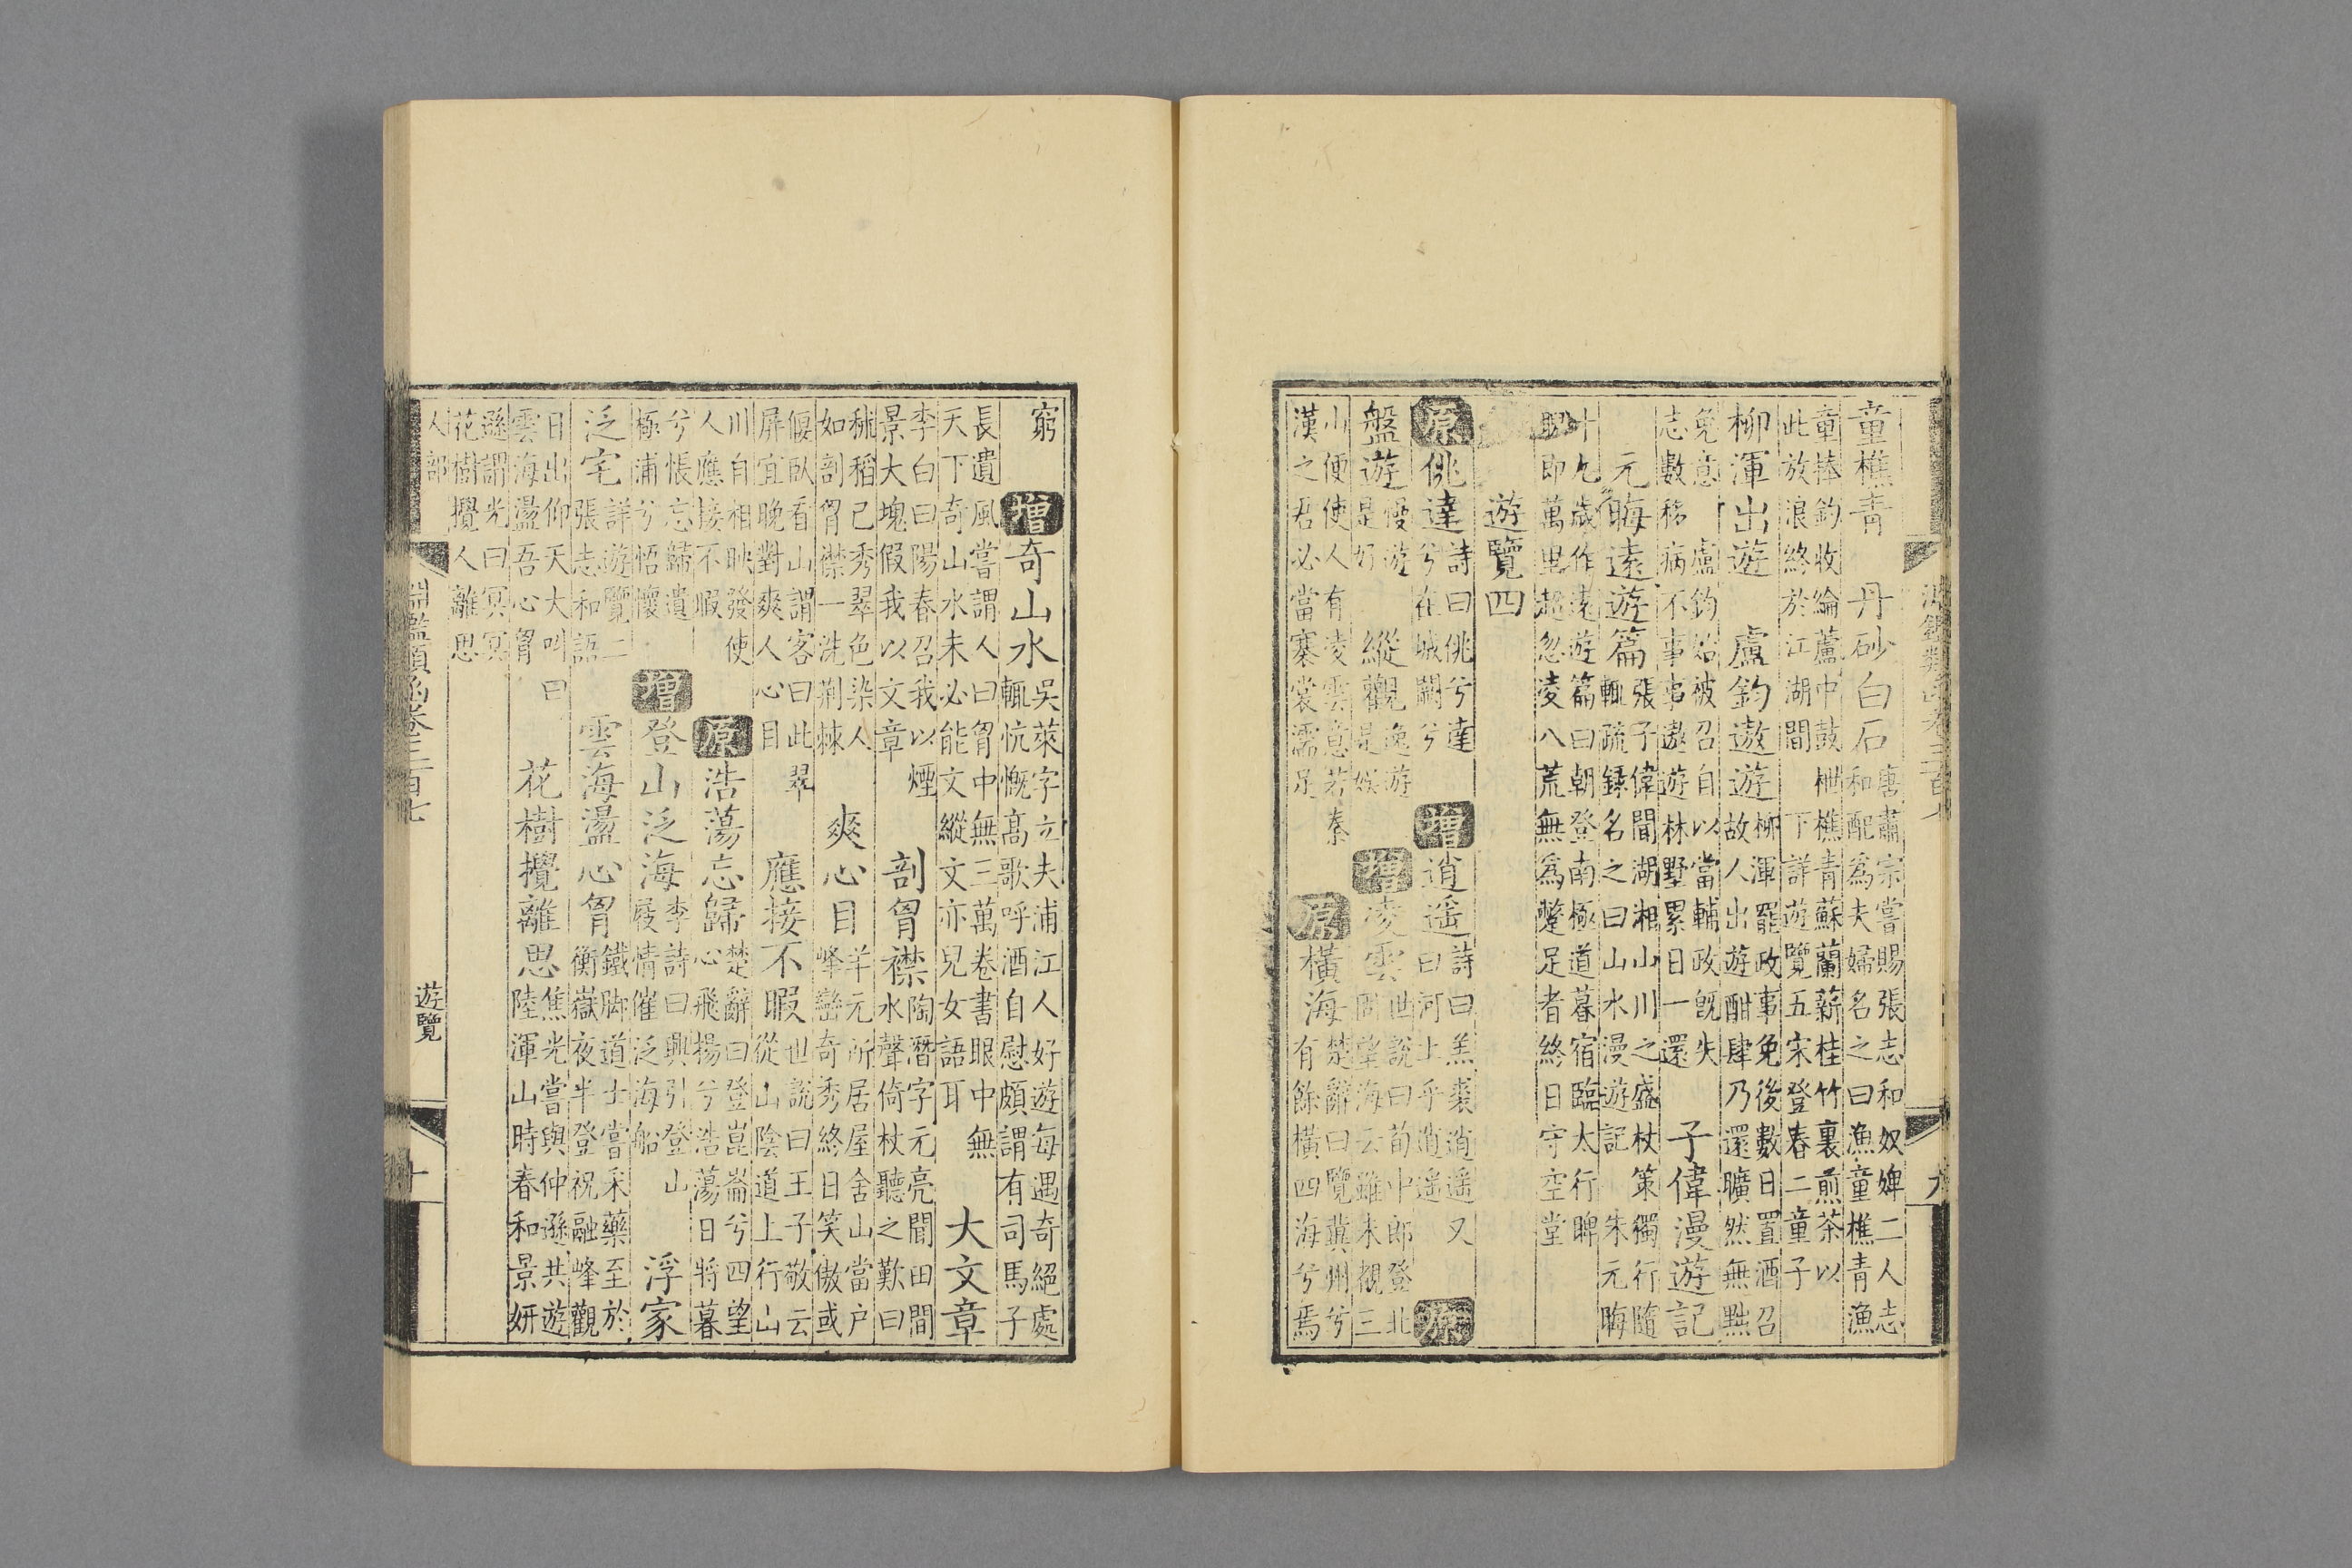 童樵青　丹砂白石 唐肅宗嘗賜張志和奴婢二人志
和配為夫婦名之曰漁童樵青漁
童捧釣收綸蘆中鼓枻樵青蘇蘭薪桂竹裏煎茶以
此放浪終於江湖間　下詳遊覽五宋登春二童子
柳渾出遊　盧鈞遨遊 柳渾罷政事免後數日置酒召
故人出遊酣肆乃還曠然無黜
免意　盧鈞始被召自以當輔政既失
志數移病不事事遨遊林墅累日一還　子偉漫遊記
元晦遠遊篇 張子偉聞湖湘山川之盛杖策獨行隨
輒疏錄名之曰山水漫遊記　朱元晦
十九歲作遠遊篇曰朝登南極道暮宿臨太行睥
睨即萬里超忽凌八荒無為蹩足者終日守空堂
遊覽四
原 佻達 詩曰佻兮達
兮在城闕兮 增 逍遥 詩曰羔裘逍遥又
曰河上乎逍遥 原
盤遊 慢遊
是好　縱觀 逸遊
是娛 增 凌雲 世說曰荀中郎登北
固望海云雖未覩三
山便使人有凌雲意若秦
漢之君必當褰裳濡足 原 橫海 楚辭曰覽冀州兮
有餘橫四海兮焉
窮 增 奇山水 吳萊字立夫浦江人好遊每遇奇絕處
輒忼慨高歌呼酒自慰頗謂有司馬子
長遺風嘗謂人曰胷中無三萬卷書眼中無
天下奇山水未必能文縱文亦兒女語耳　大文章
李白曰陽春召我以煙
景大塊假我以文章　剖胷襟 陶潛字元亮聞田間
水聲倚杖聽之歎曰
秫稻已秀翠色染人
如剖胷襟一洗荆棘　爽心目 羊元所居屋舍山當户
峰巒奇秀終日笑傲或
偃臥看山謂客曰此翠
屏宜晚對爽人心目　應接不暇 世說曰王子敬云
從山陰道上行山
川自相映發使
人應接不暇 原 浩蕩忘歸 楚辭曰登崑崙兮四望
心飛揚兮浩蕩日將暮
兮悵忘歸遺
極浦兮悟懷 增 登山泛海 李詩曰興引登山
屐情催泛海船　浮家
泛宅 詳遊覽二
張志和語　雲海盪心胷 鐵脚道士嘗采藥至於
衡嶽夜半登祝融峰觀
日出仰天大叫曰
雲海盪吾心胷　花樹攪離思 焦光嘗與仲遜共遊
陸渾山時春和景妍
遜謂光曰冥冥
花樹攪人離思
人部
遊覽
十